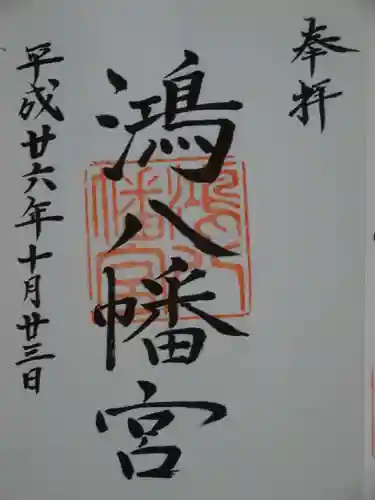 奉拝
鴻八幡宮
平成廿六年十月廿三日